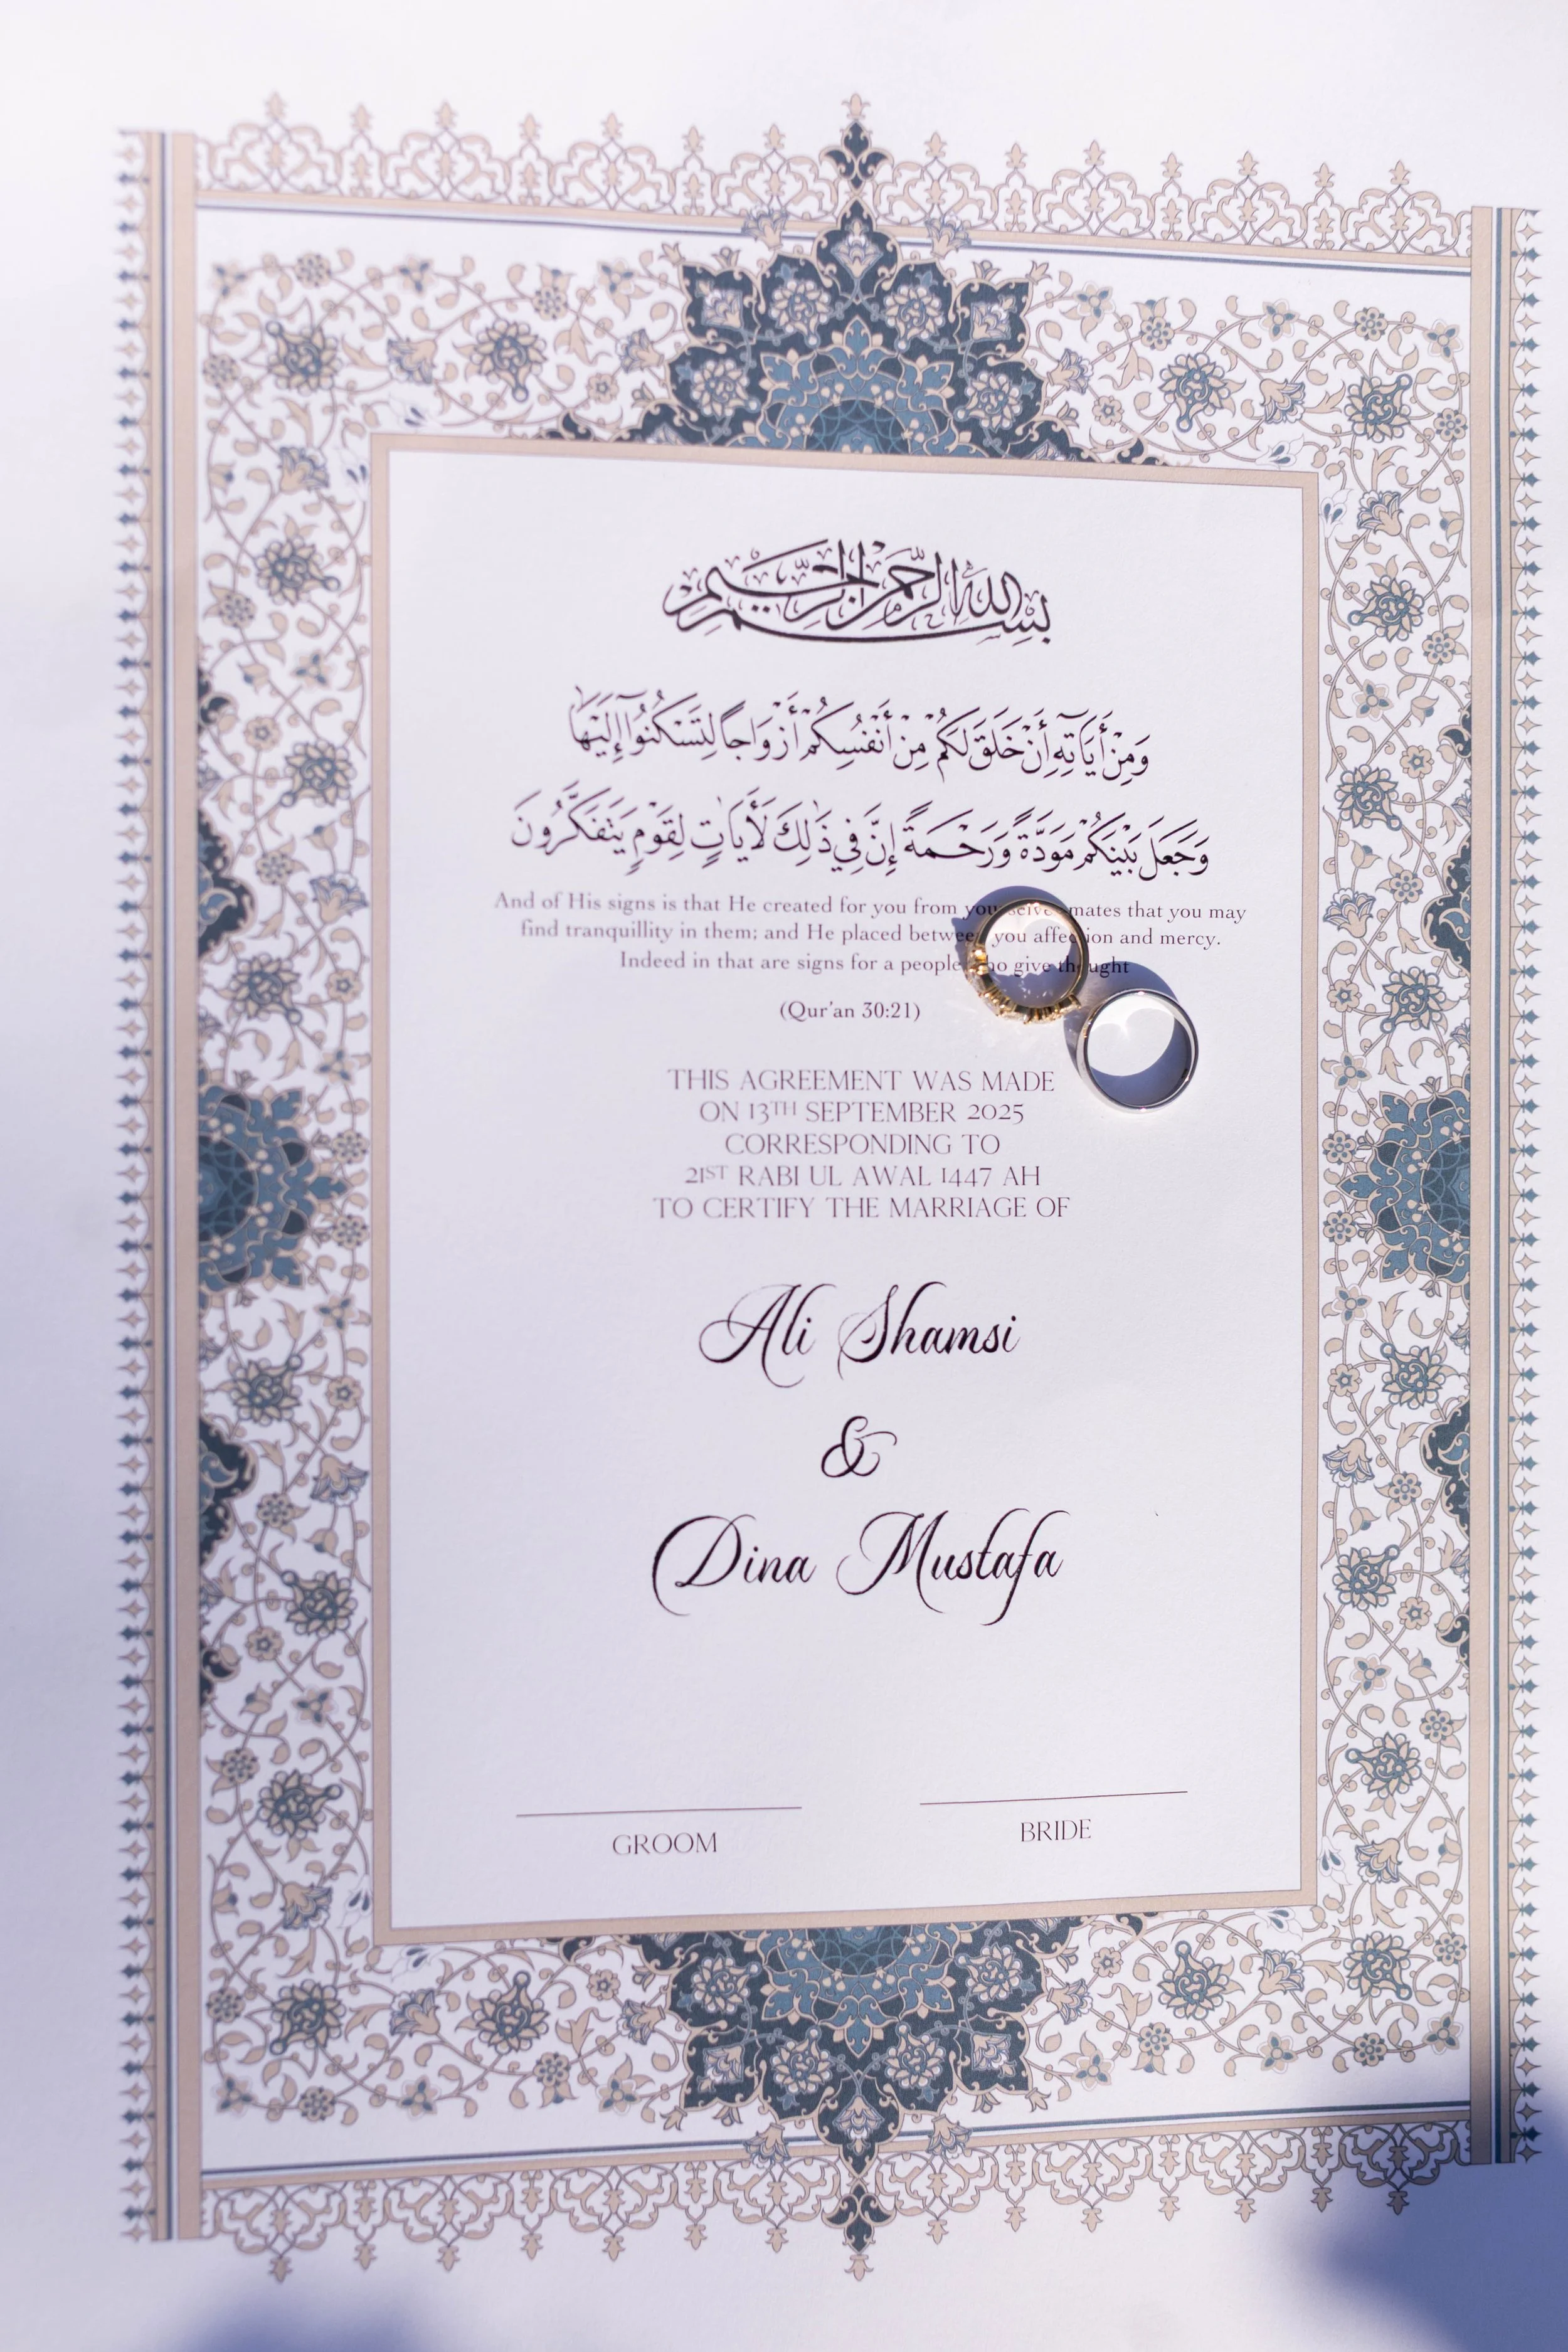 بِسْمِ اللهِ الرَّحْمٰنِ الرَّحِيْمِ
وَمِنْ أَيَاتِهِ أَنْ خَلَقَ لَكُمْ مِنْ أَنْفُسِكُمْ أَزْوَاجًا لِتَسْكُنُوا إِلَيْهَا
وَجَعَلَ بَيْنَكُمْ مَوَدَّةً وَرَحْمَةً إِنَّ فِي ذَلِكَ لَأَيَاتٍ لِقَوْمٍ يَتَفَكَّرُونَ
And of His signs is that He created for you from mates that you may
find tranquillity in them; and He placed between you affection and mercy.
Indeed in that are signs for a people who give thought
(Qur'an 30:21)
THIS AGREEMENT WAS MADE
ON 13TH SEPTEMBER 2025
CORRESPONDING TO
21ST RABI UL AWAL 1447 AH
TO CERTIFY THE MARRIAGE OF
Ali Shamsi
&
Dina Mustafa
GROOM BRIDE